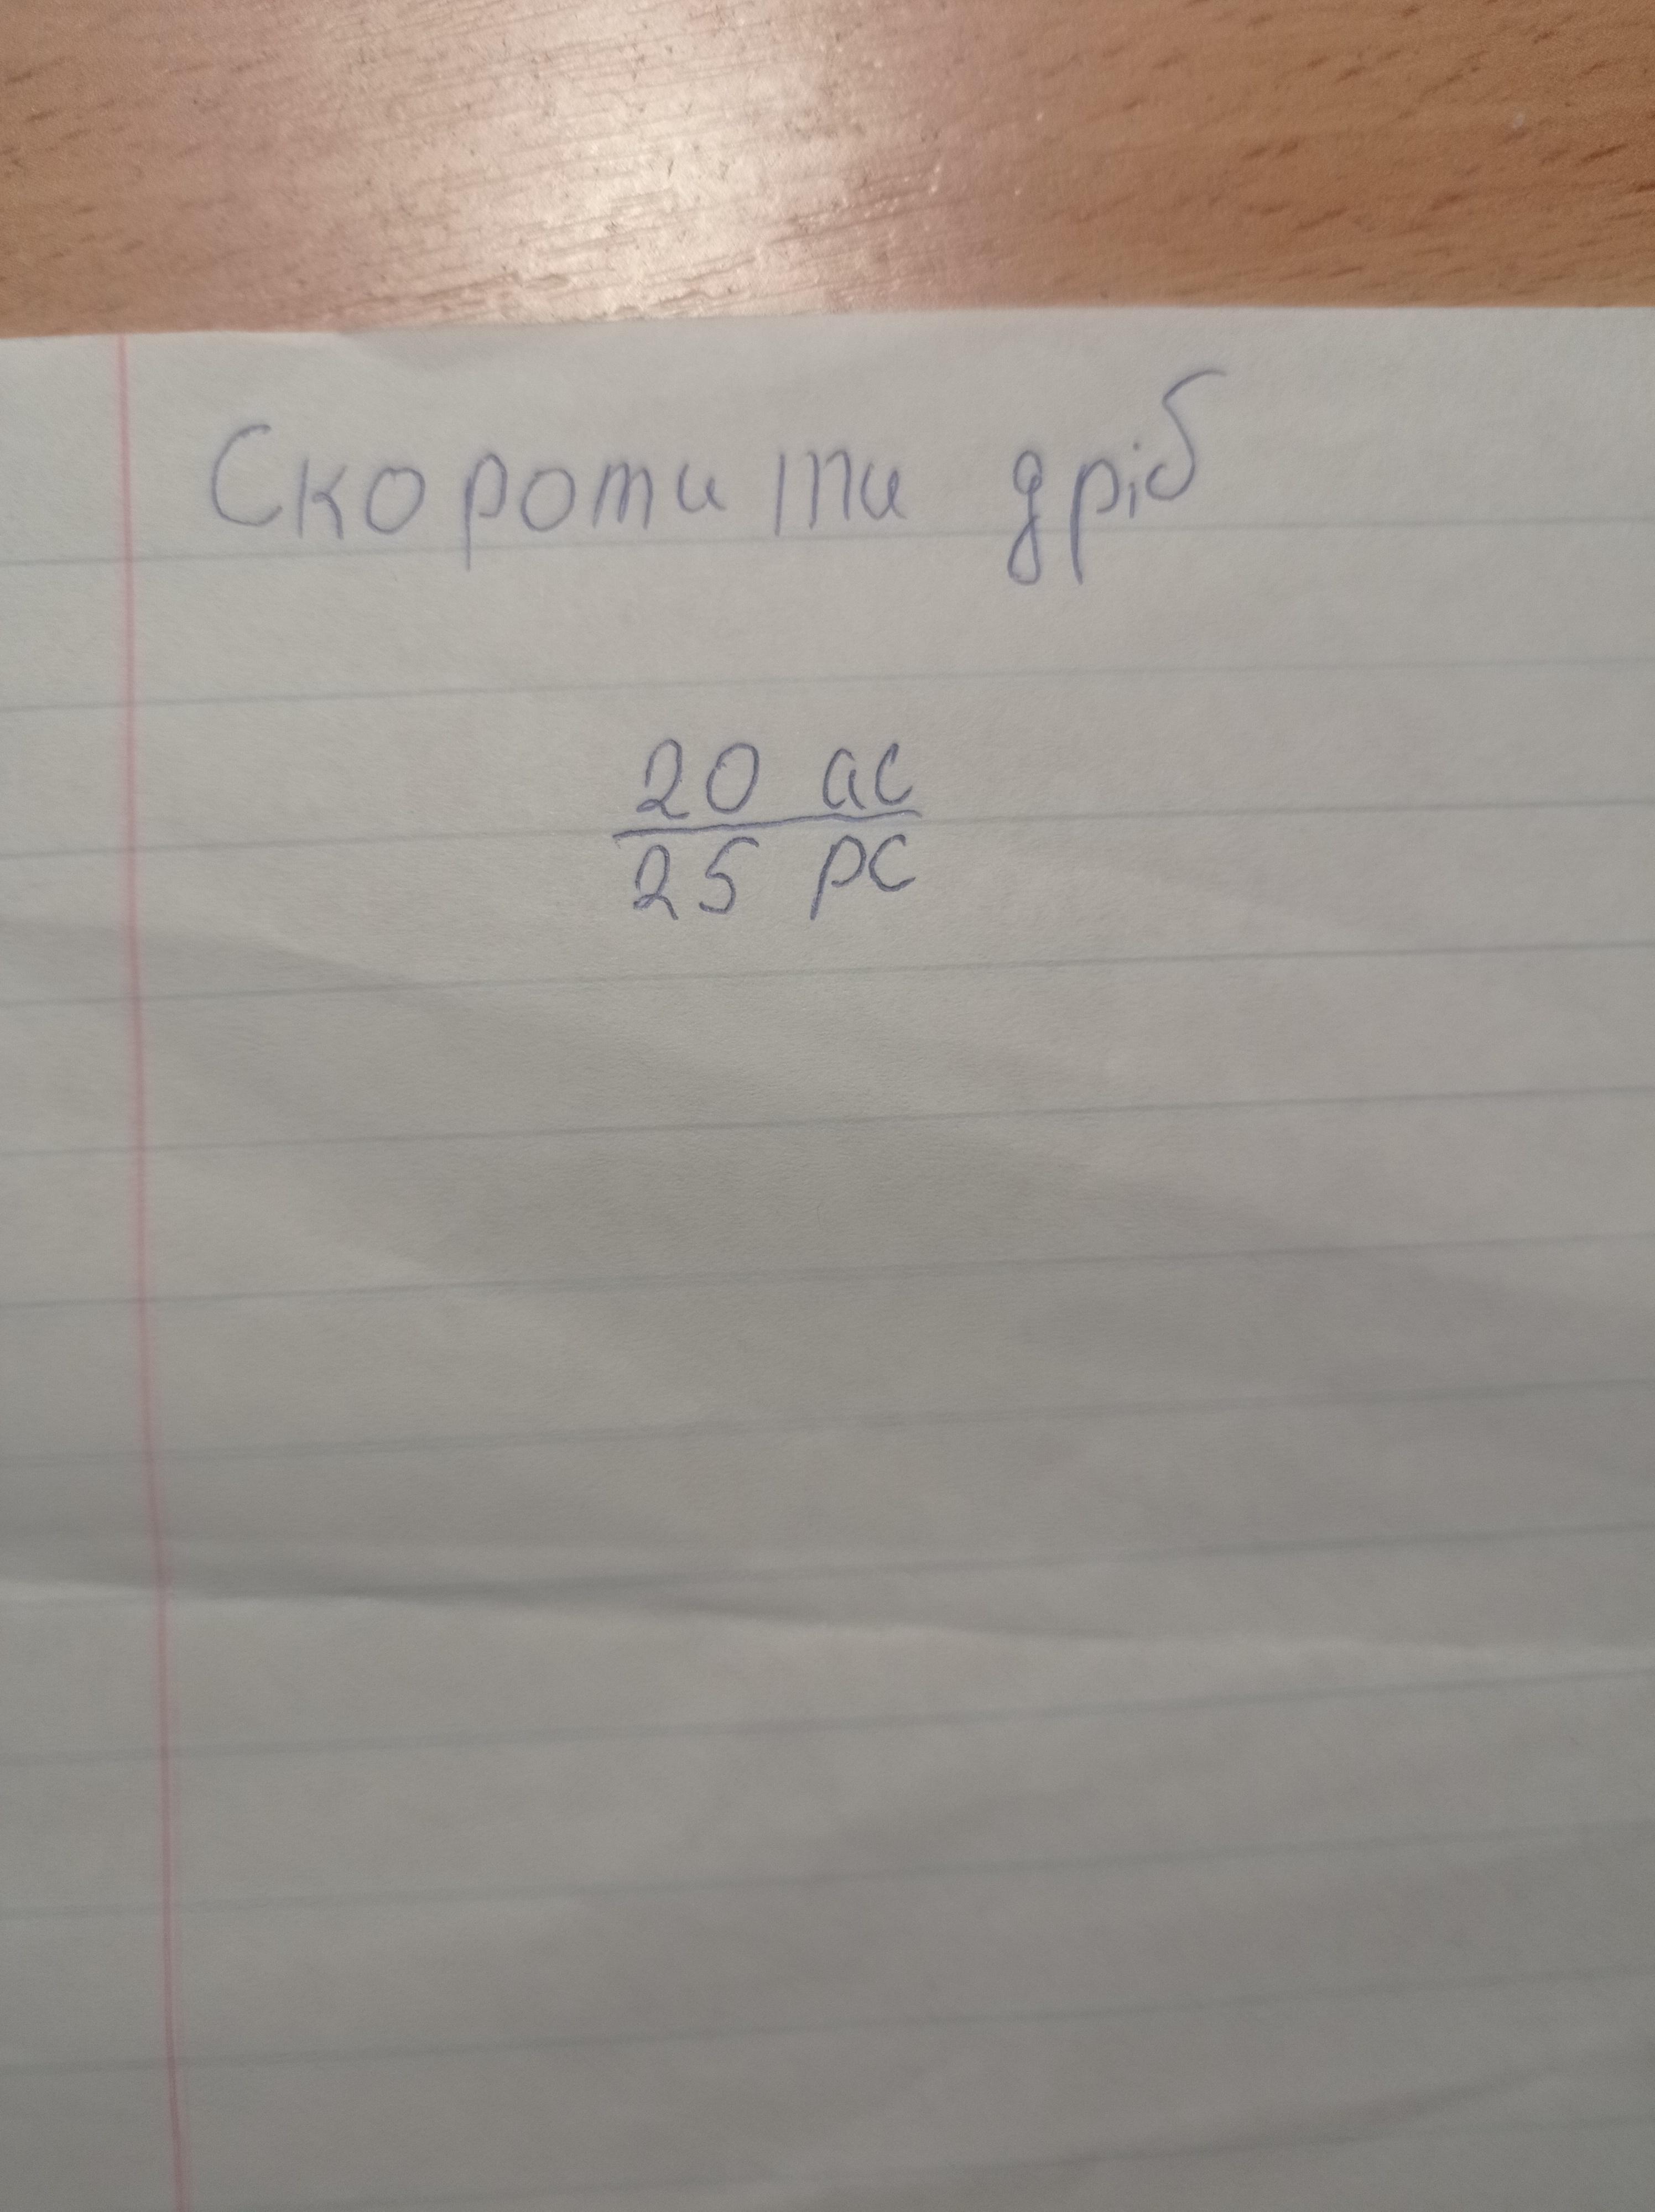 Скоротити дріб
20 ac
25 pc